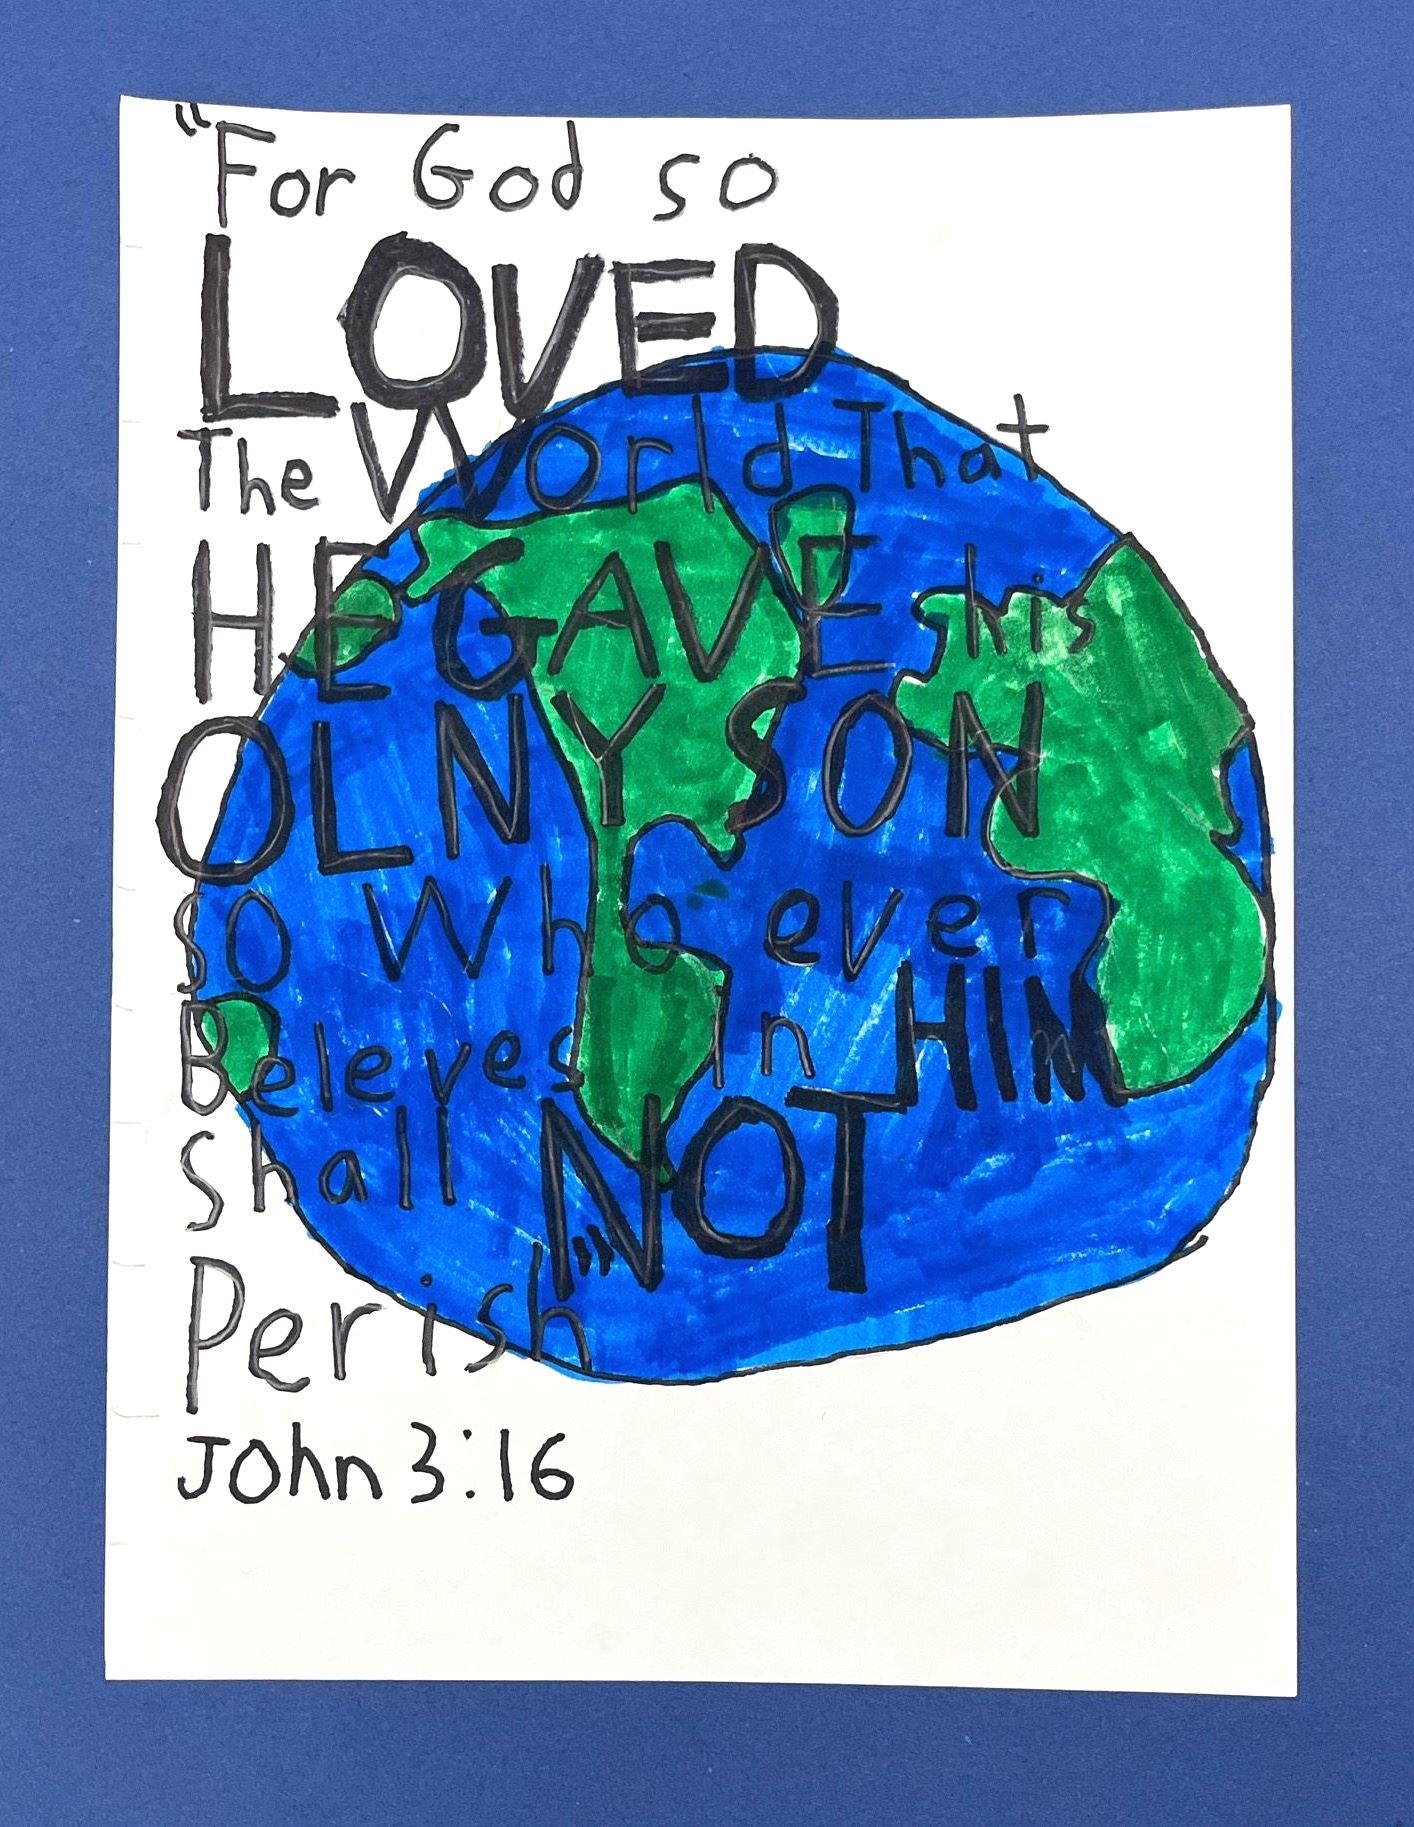 "For God so
LOVED
The World That
HE GAVE his
OLNY SON
so Who ever
Beleves in HIM
Shall NOT
Perish"
John 3:16